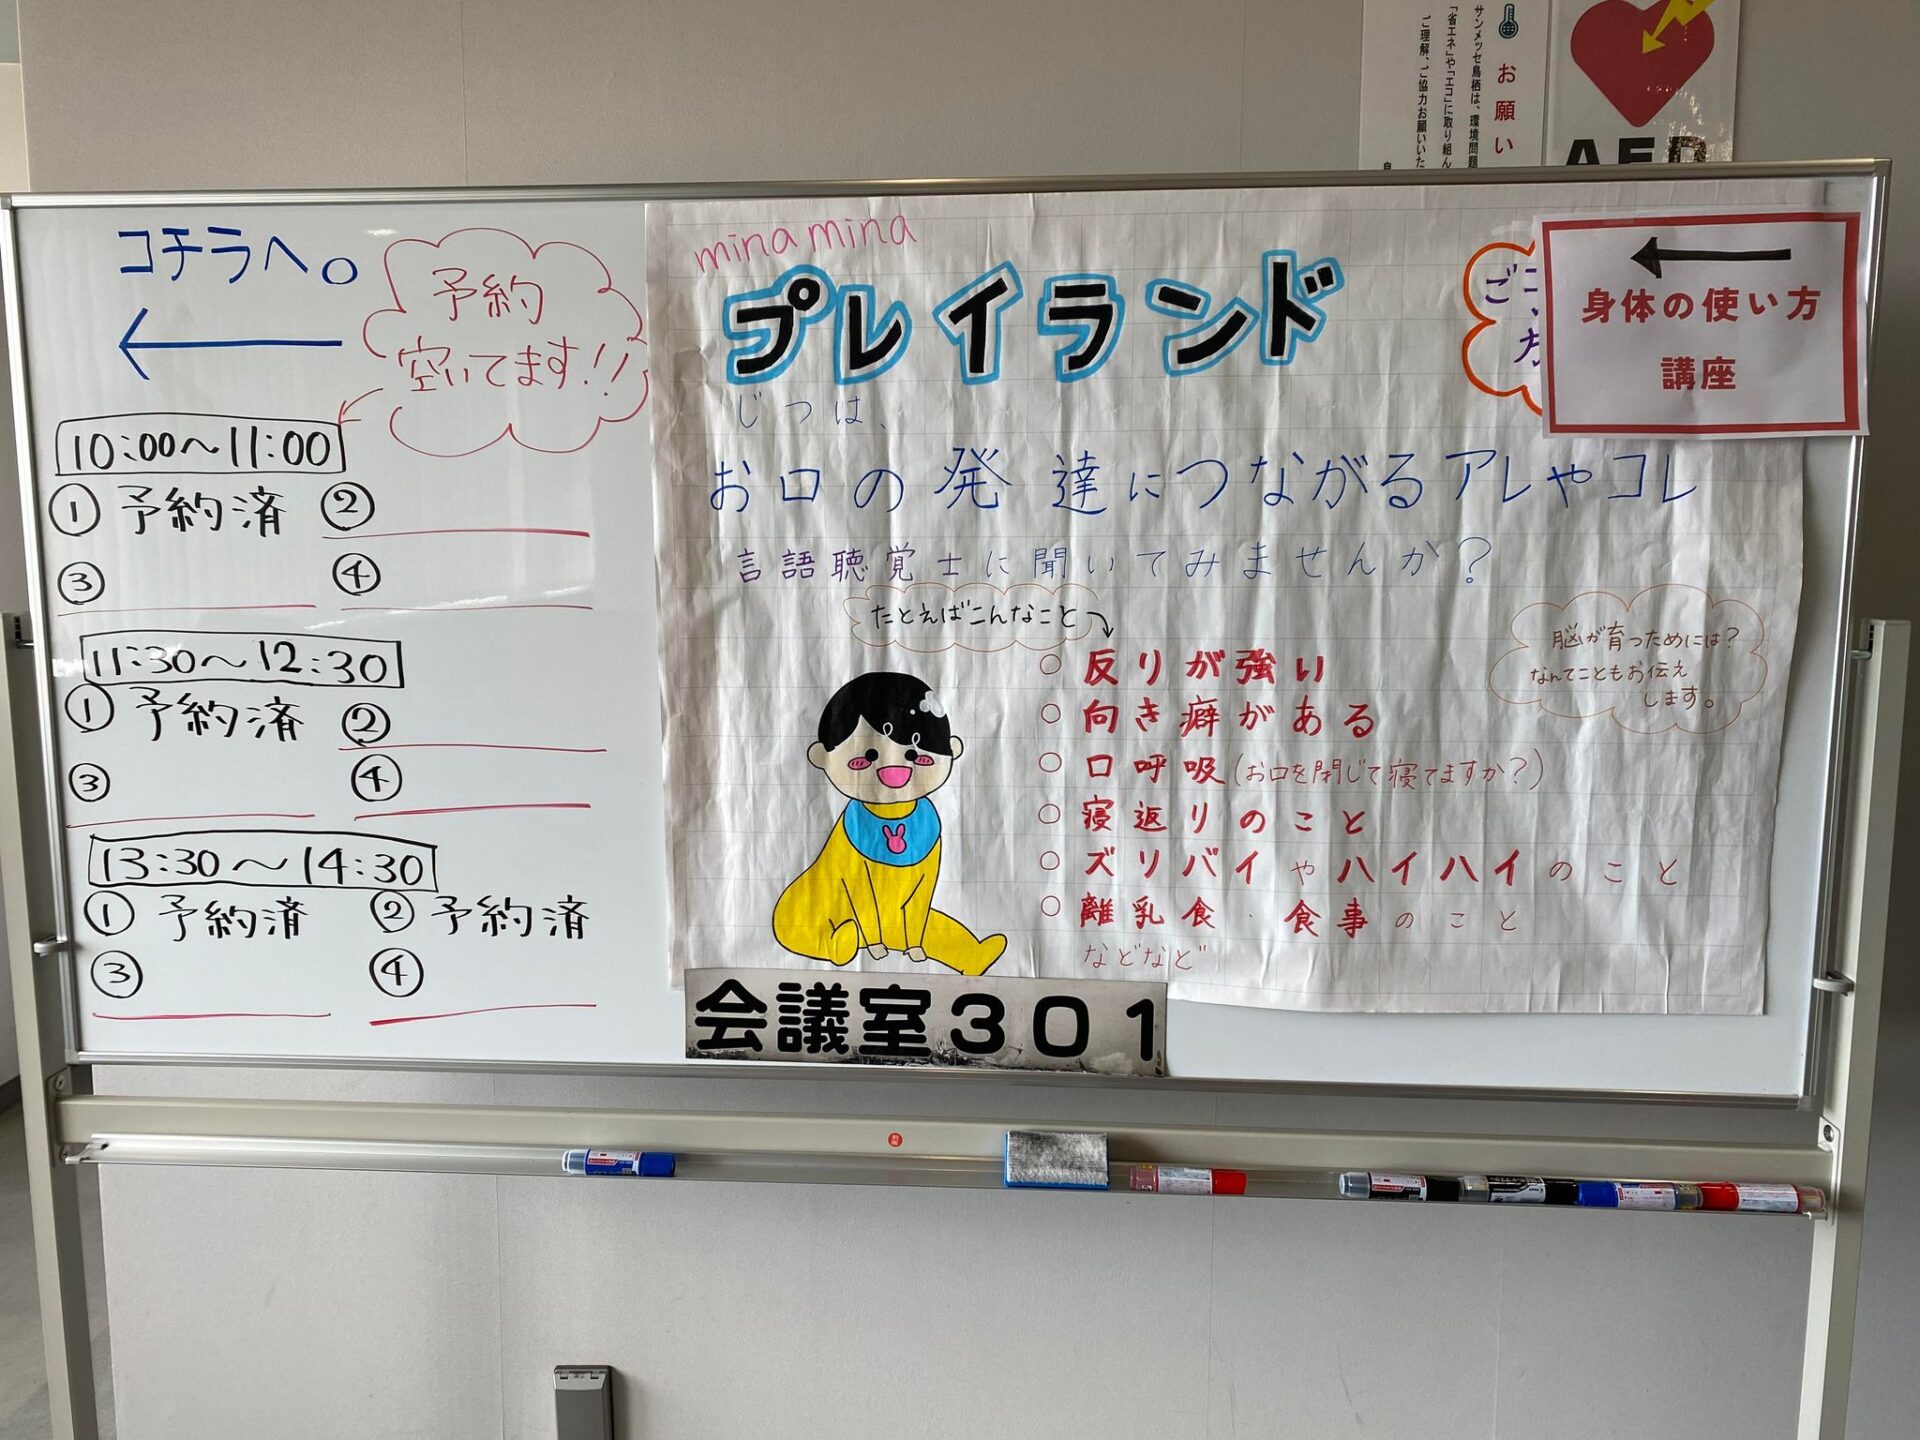 コチラへ。
予約
空いてます!!
10:00〜11:00
① 予約済 ②
③ ④
11:30〜12:30
① 予約済 ②
③ ④
13:30〜14:30
① 予約済 ② 予約済
③ ④
mina mina
プレイランド
じつは、
お口の発達につながるアレやコレ
言語聴覚士に聞いてみませんか?
たとえばこんなこと
○ 反りが強い
○ 向き癖がある
○ 口呼吸(お口を閉じて寝てますか?)
○ 寝返りのこと
○ ズリバイやハイハイのこと
○ 離乳食・食事のこと
などなど
脳が育つためには?
なんてこともお伝え
します。
身体の使い方
講座
会議室301
お願い
サンメッセ鳥栖は、環境問題
「省エネ」や「エコ」に取り組ん
ご理解、ご協力お願いいた
AED